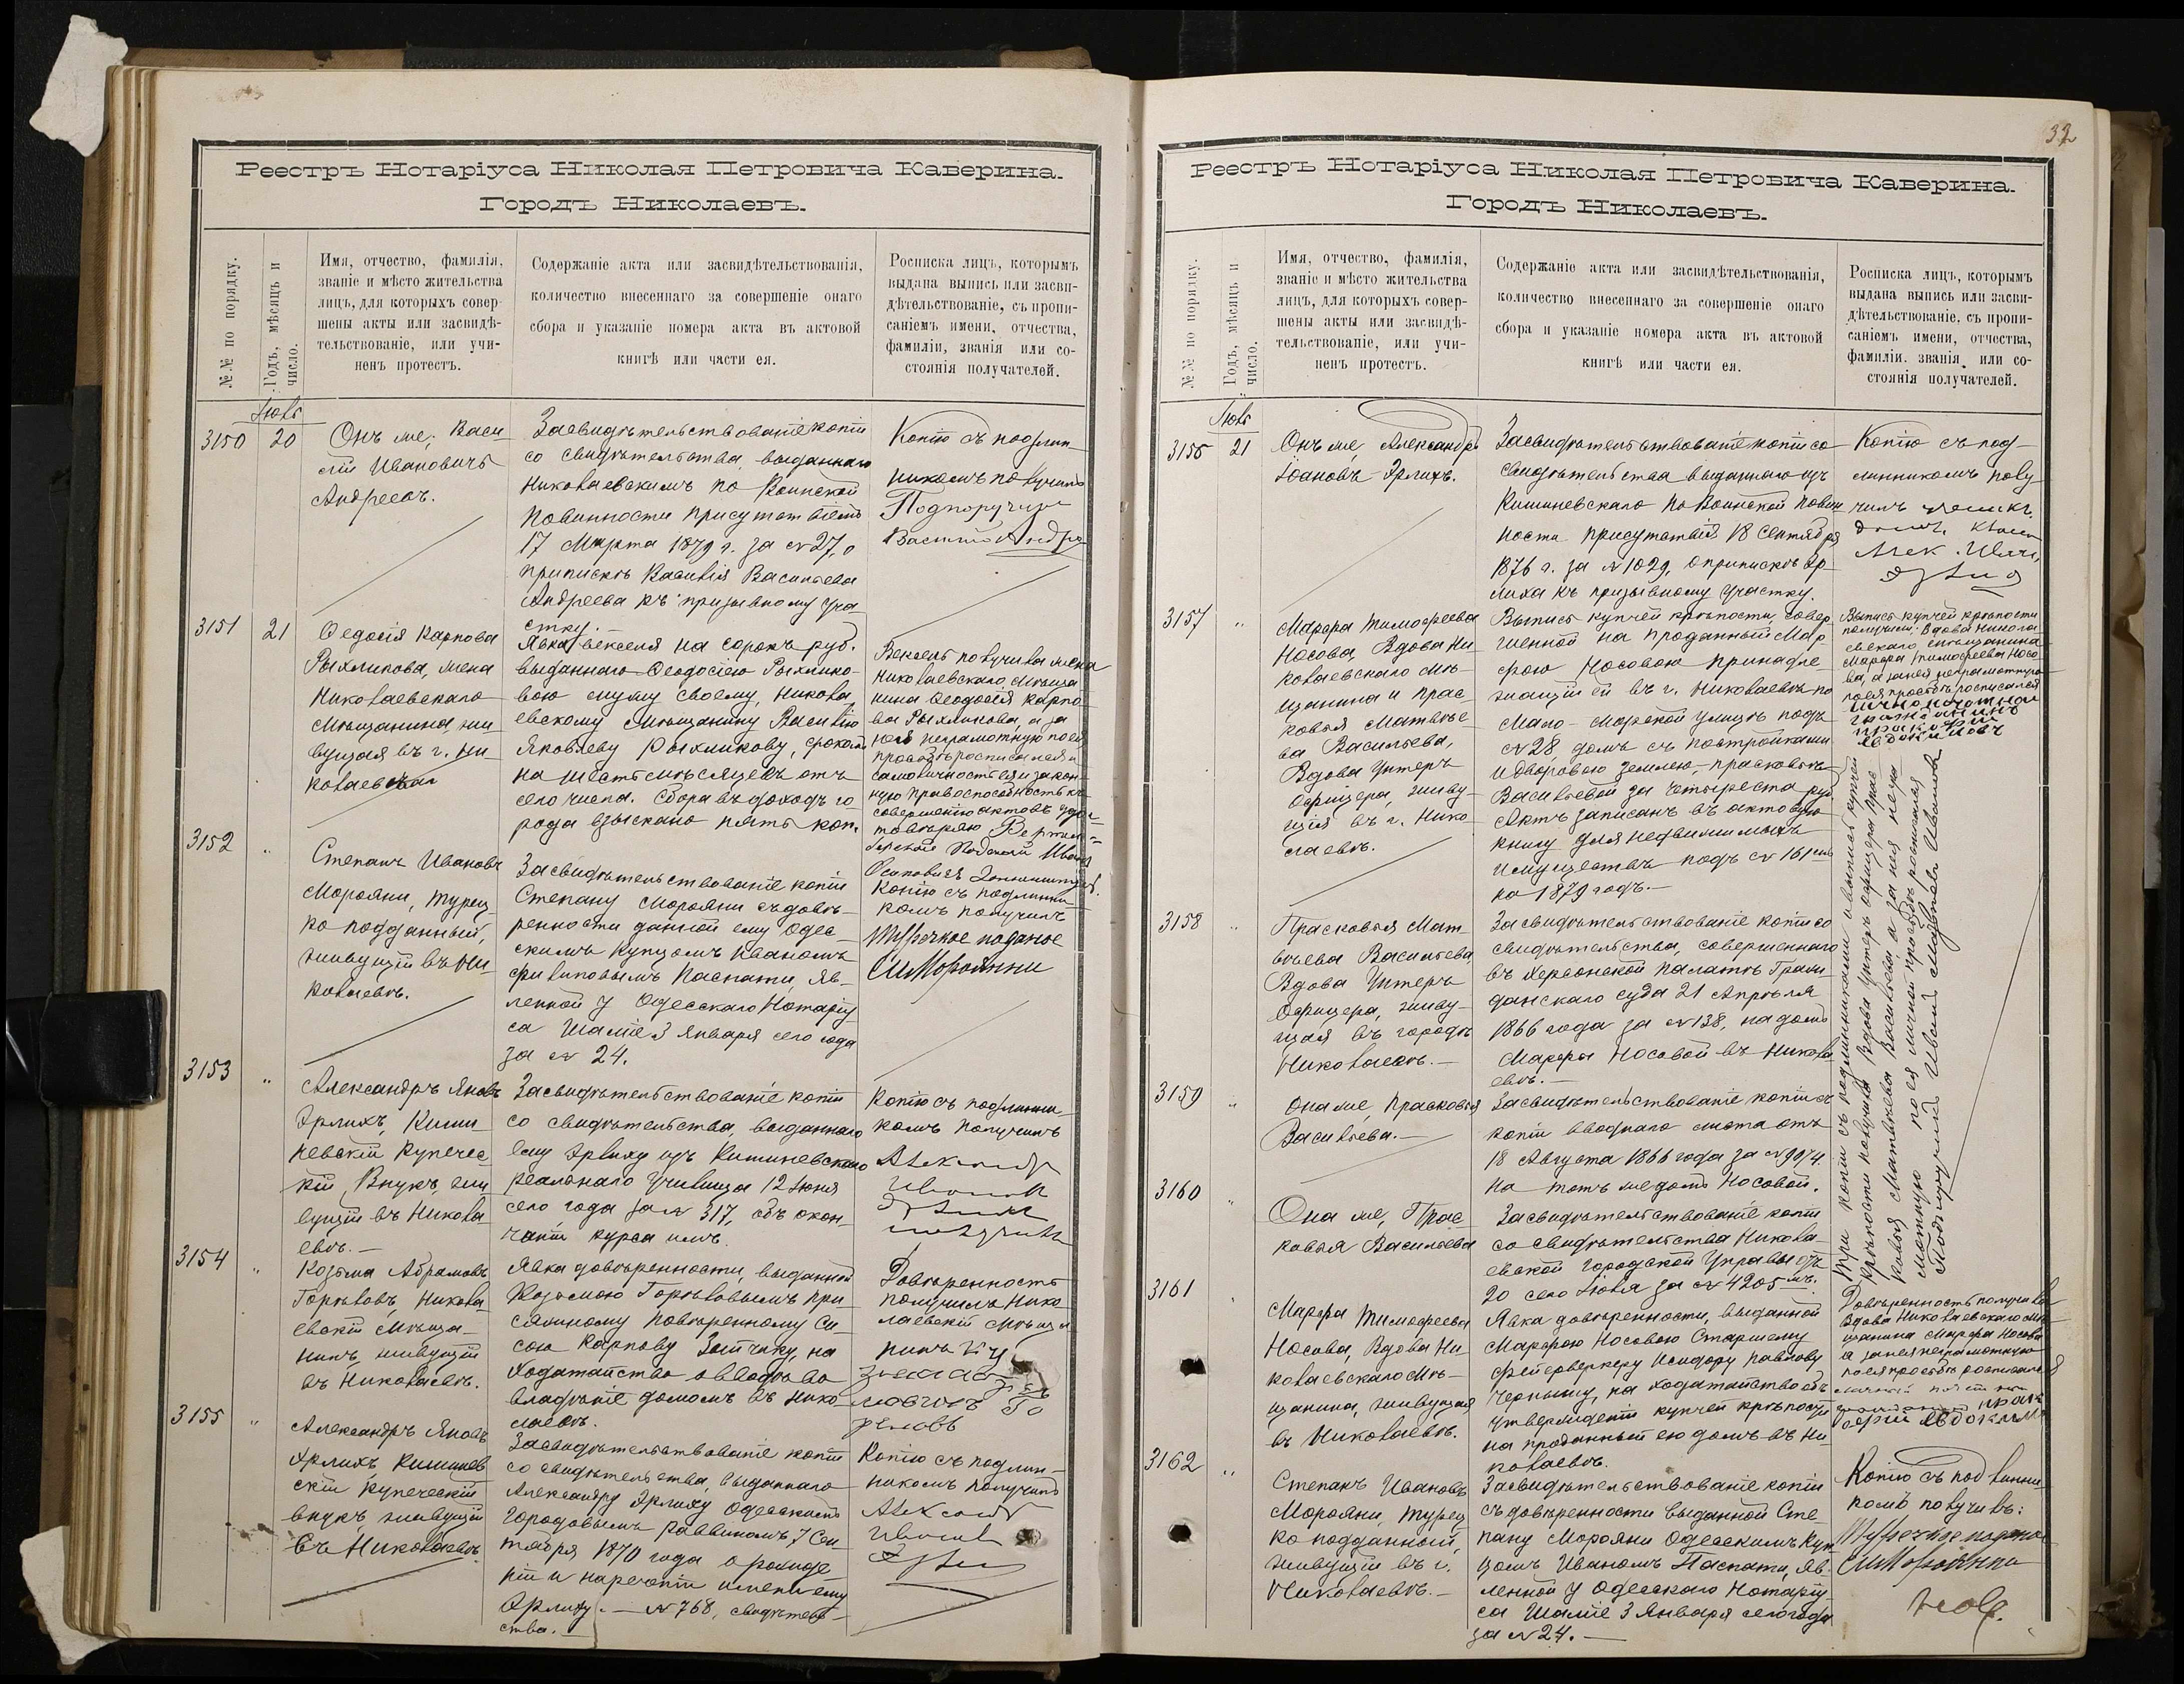 Реестръ Нотаріуса Николая Петровича Каверина.
Городъ Николаевъ.
№№ по порядку.
Годъ, мѣсяцъ и
число.
Имя, отчество, фамилія,
званіе и мѣсто жительства
лицъ, для которыхъ совер-
шены акты или засвидѣ-
тельствованіе, или учи-
ненъ протестъ.
Содержаніе акта или засвидѣтельствованія,
количество внесеннаго за совершеніе онаго
сбора и указаніе номера акта въ актовой
книгѣ или части ея.
Росписка лицъ, которымъ
выдана выпись или засви-
дѣтельствованіе, съ пропи-
саніемъ имени, отчества,
фамиліи, званія или со-
стоянія получателей.
Іюль
3150
20
Онъ же, Васи
лій Ивановичъ
Андреевъ.
Засвидѣтельствованіе копіи
со свидѣтельства, выданнаго
Николаевскимъ по Воинской
повинности присутствіемъ
17 Марта 1879 г. за №27, о
припискѣ Василія Васильева
Андреева къ призывному уча
стку.
Копію съ подлин
никомъ получилъ
Подпоручик
Василій Андре
3151
21
Ѳедосія Карпова
Рыхликова, жена
Николаевскаго
Мѣщанина, жи
вущая въ г. Ни
колаевѣ
Явка векселя на сорокъ руб.
выданнаго Ѳеодосіею Рыхлико-
вою мужу своему, Никола
евскому Мѣщанину Василію
Яковлеву Рыхликову, срокомъ
на шесть мѣсяцевъ отъ
сего числа. Сбора въ доходъ го
рода взыскано пять коп.
Вексель получила жена
Николаевскаго Мѣща
нина Ѳеодосія Карпо
ва Рыхликова, а за
нея неграмотную по ея
просьбѣ росписался и
самоличность ея и закон
ную правоспособность къ
совершенію актовъ удос-
товѣряю
3152
"
Степанъ Ивановъ
Морояни, турец
ко подданный,
живущій въ Ни-
колаевѣ.
Засвидѣтельствованіе копіи
Степану Морояни съ довѣ-
ренности данной ему Одес-
скимъ купцомъ Иваномъ
Филиповымъ Паспати, яв-
ленной у Одесскаго Нотаріу
са Шаміе 3 Января сего года
за № 24.
Копію съ подлинни
комъ получилъ
3153
"
Александръ Яновъ
Эрлихъ, Киши
невскій Купечес-
кій Внукъ, жи
вущій въ Никола
евѣ.
Засвидѣтельствованіе копіи
со свидѣтельства, выданнаго
ему Эрлиху изъ Кишиневскаго
реальнаго Училища 12 Іюня
сего года за № 317, объ окон-
чаніи курса имъ.
Копію съ подлинни
комъ получилъ
3154
"
Козьма Абрамовъ
Горѣловъ, Никола
евскій Мѣща-
нинъ, живущій
въ Николаевѣ.
Явка довѣренности, выданной
Козьмою Горѣловымъ при
сяжному повѣренному Си
сою Карпову Зотчику, на
ходатайство о вводѣ во
владѣніе домомъ въ Нико
лаевѣ.
Довѣренность
получилъ Нико
лаевскій Мѣща
нинъ
3155
"
Александръ Яновъ
Эрлихъ Кишинев
скій купеческій
внукъ, живущій
въ Николаевѣ
Засвидѣтельствованіе копіи
со свидѣтельства, выданнаго
Александру Эрлиху Одесскимъ
городовымъ раввиномъ 7 Сен
тября 1870 года о рожде
ніи и нареченіи имени ему
Эрлиху. — №768, свидѣтель
ства.
Копію съ подлин-
никомъ получилъ
32
Реестръ Нотаріуса Николая Петровича Каверина.
Городъ Николаевъ.
№№ по порядку.
Годъ, мѣсяцъ и
число.
Имя, отчество, фамилія,
званіе и мѣсто жительства
лицъ, для которыхъ совер-
шены акты или засвидѣ-
тельствованіе, или учи-
ненъ протестъ.
Содержаніе акта или засвидѣтельствованія,
количество внесеннаго за совершеніе онаго
сбора и указаніе номера акта въ актовой
книгѣ или части ея.
Росписка лицъ, которымъ
выдана выпись или засви-
дѣтельствованіе, съ пропи-
саніемъ имени, отчества,
фамиліи, званія или со-
стоянія получателей.
Іюль
3156
21
Онъ же, Александръ
Іоановъ Эрлихъ.
Засвидѣтельствованіе копіи со
свидѣтельства выданнаго изъ
Кишиневскаго по Воинской повин
ности присутствія 18 Сентября
1876 г. за №1029, о припискѣ Эр-
лиха къ призывному участку.
Копію съ под
линникомъ полу
чилъ
3157
"
Марфа Тимофеева
Носова, Вдова Ни
колаевскаго Мѣ-
щанина и Прас
ковья Матвѣе
ва Васильева,
Вдова Унтеръ
Офицера, живу-
щія въ г. Нико
лаевѣ.
Выпись купчей крѣпости, совер
шенной на проданный Мар-
фою Носовою принадле
жащій ей въ г. Николаевѣ по
Мало-Морской улицѣ подъ
№28, домъ съ постройками
и дворовою землею, Прасковьѣ
Васильевой за четыреста руб
Актъ записанъ въ актовую
книгу для недвижимыхъ
имуществъ подъ № 161
на 1879 годъ.
Выпись купчей крѣпости
получили: Вдова Никола
евскаго мѣщанина
Марфа Тимофеева Носо
ва, а за нея неграмотную
по ея просьбѣ росписался
лично почотной
гражданинъ
Евдокимовъ
Три копіи съ подлинниками и выпись купчей
крѣпости получила Вдова Унтеръ офицера Прас
ковья Матвѣева Васильева, а за нея негра
мотную по ея личной просьбѣ росписался
Подпоручикъ Иванъ Ивановъ
3158
"
Прасковья Мат
вѣева Васильева
Вдова Унтеръ
Офицера, живу-
щая въ городѣ
Николаевѣ.
Засвидѣтельствованіе копіи со
свидѣтельства, совершеннаго
въ Херсонской Палатѣ Граж-
данскаго суда 21 Апрѣля
1866 года за №138, на домъ
Марфы Носовой въ Никола
евѣ.
3159
"
Она же, Прасковья
Васильева.
Засвидѣтельствованіе копіи съ
копіи вводнаго листа отъ
18 Августа 1866 года за №9974
на тотъ же домъ Носовой.
3160
"
Она же, Прас
ковья Васильева
Засвидѣтельствованіе копіи
со свидѣтельства Никола-
евской Городской Управы отъ
20 сего Іюля за №4205
3161
"
Марфа Тимофеева
Носова, Вдова Ни
колаевскаго Мѣ-
щанина, живущая
въ Николаевѣ.
Явка довѣренности, выданной
Марфою Носовою Старшему
фейерверкеру Исидору Павлову
Чернышу, на ходатайство объ
утвержденіи купчей крѣпости
на проданный ею домъ въ Ни
колаевѣ.
Довѣренность получила
Вдова Николаевскаго мѣ
щанина Марфа Носова
а за нея неграмотную
по ея просьбѣ росписался
3162
"
Степанъ Ивановъ
Морояни, турец
ко подданный,
живущій въ г.
Николаевѣ.
Засвидѣтельствованіе копіи
съ довѣренности выданной Сте-
пану Морояни Одесскимъ Куп
цомъ Иваномъ Паспати, яв-
ленной у Одесскаго Нотаріу
са Шаміе 3 Января сего года
за №24.
Копію съ подлинни
комъ получилъ: